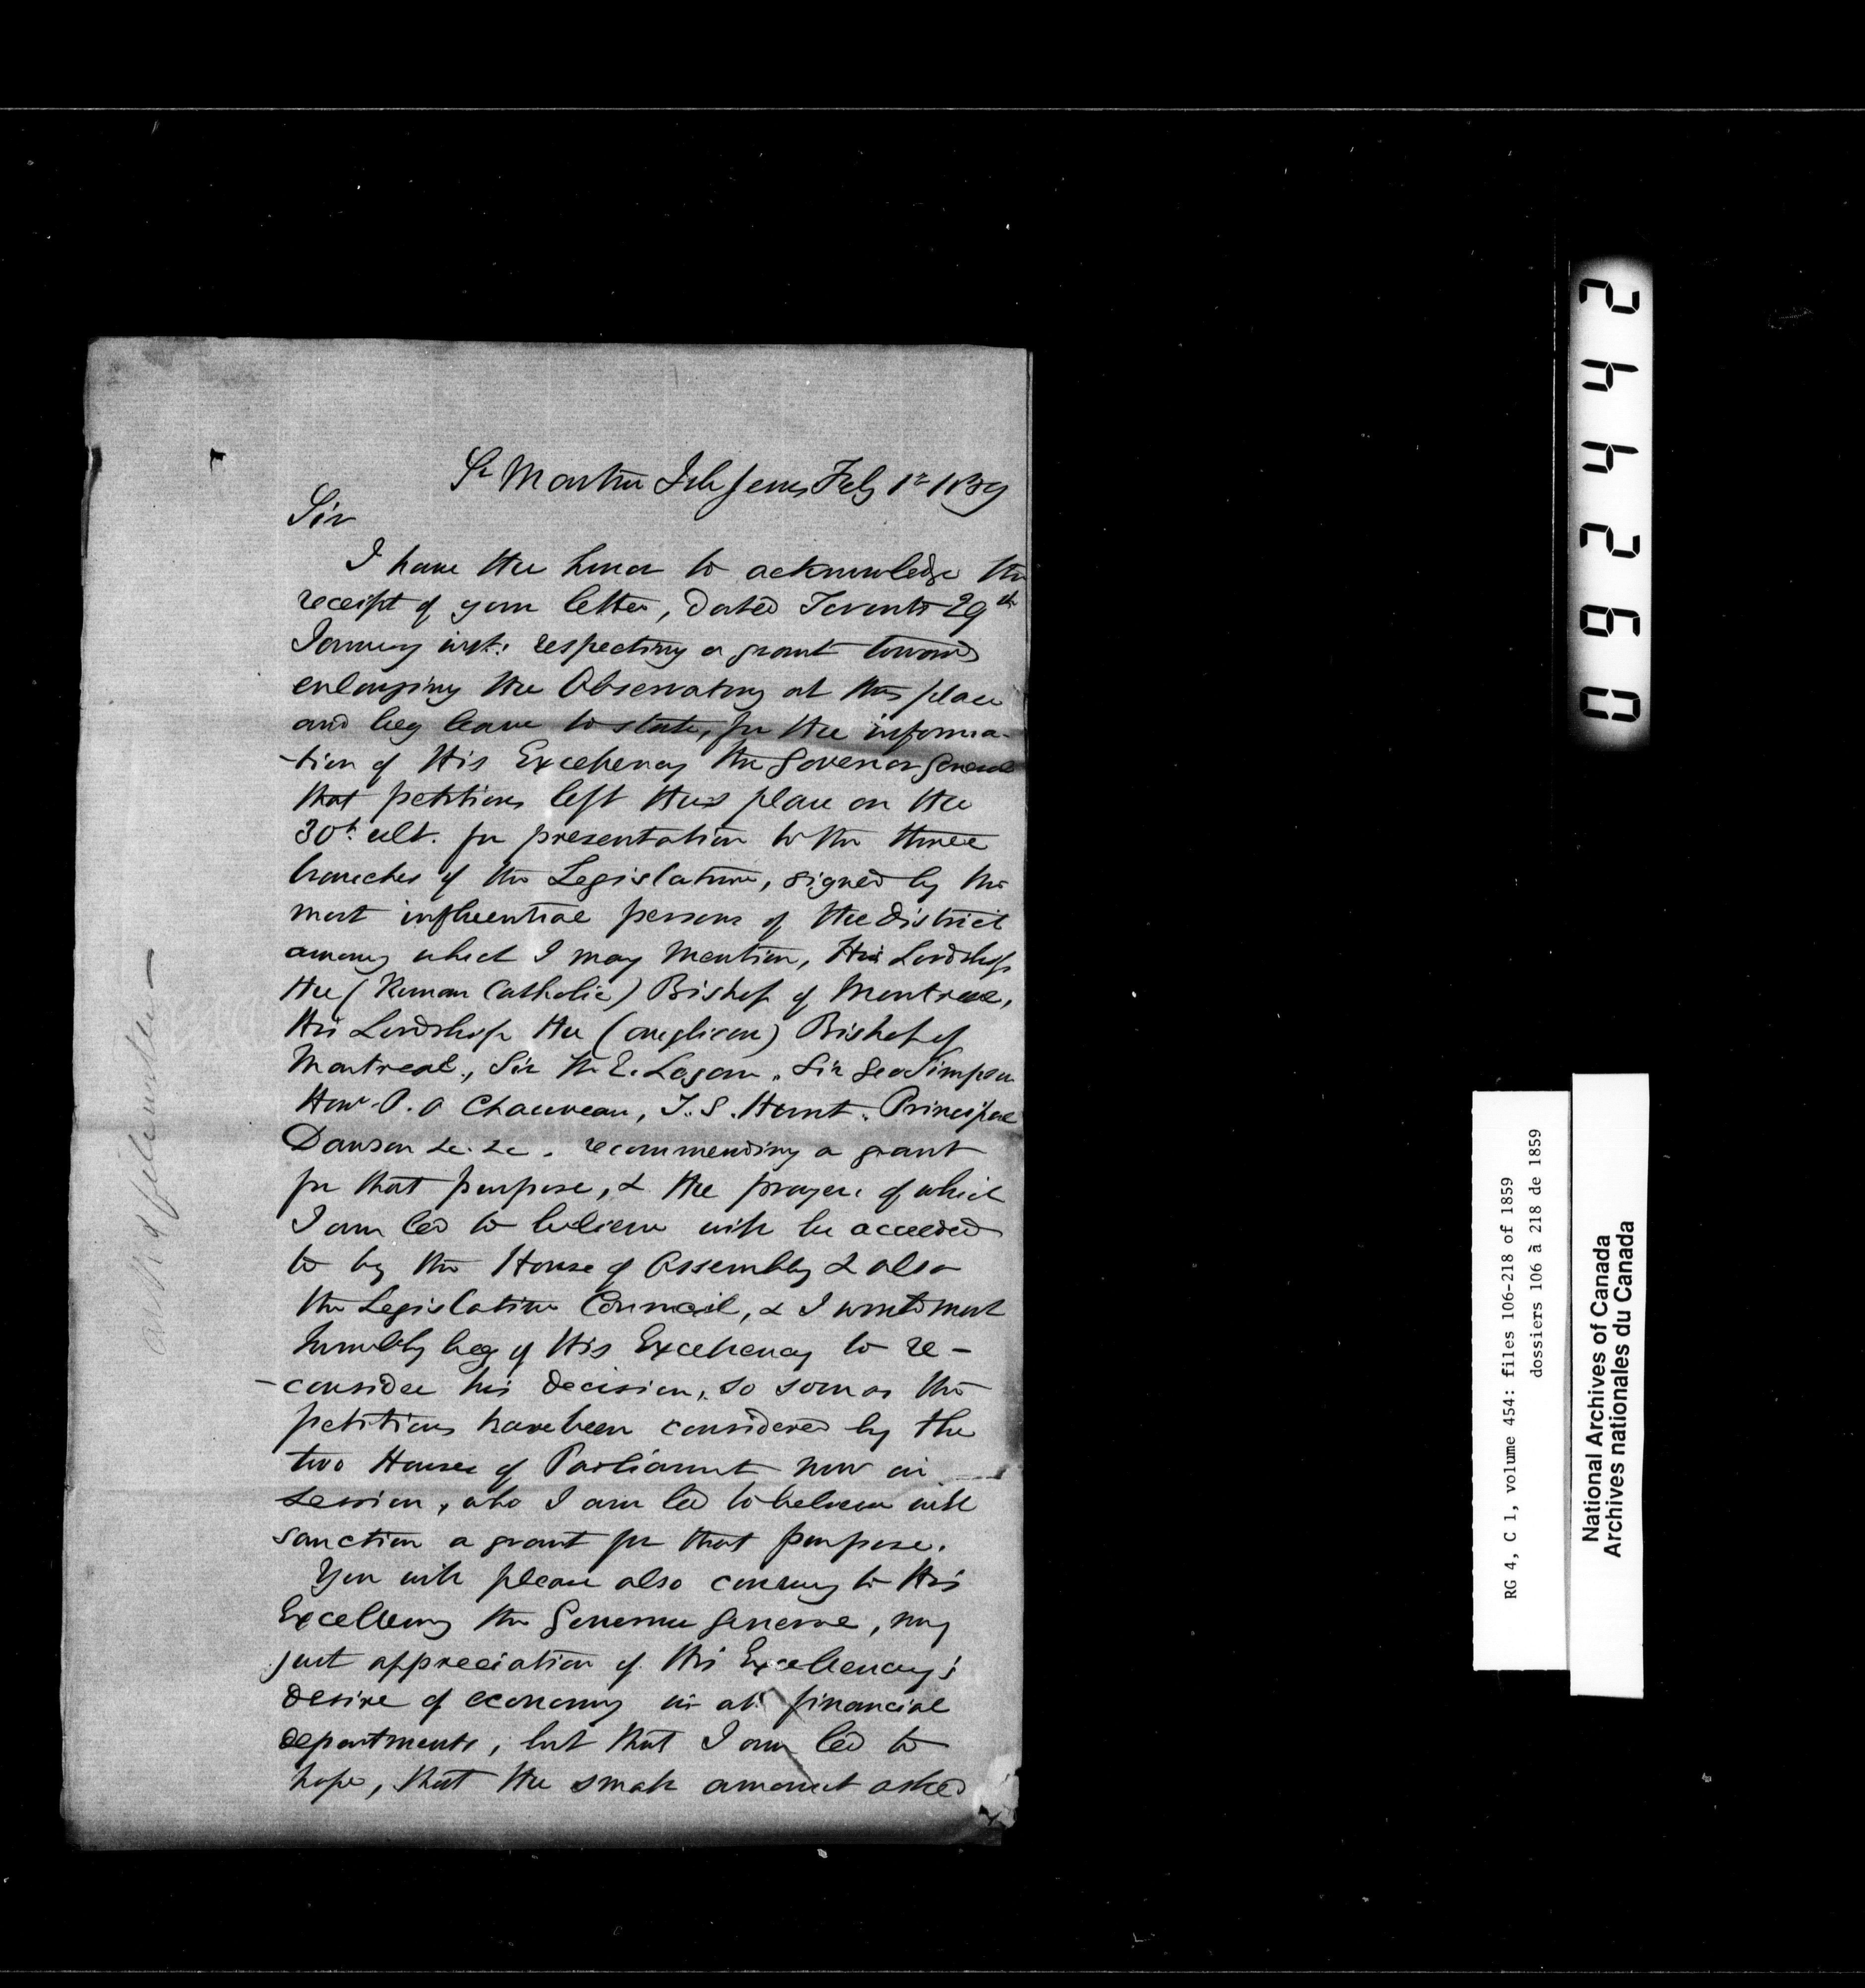 St Martin Isle Jesus Feby 1st 1859
Sir
I have the honor to acknowledge the
receipt of your letter, dated Toronto 29th
January inst: respecting a grant towards
enlarging the Observatory at this place
and beg leave to state, for the informa-
-tion of His Excellency the Governor General
that petitions left this place on the
30th ult. for presentation to the three
branches of the Legislature, signed by the
most influential persons of the district
among which I may mention, His Lordship
the (Roman Catholic) Bishop of Montreal,
His Lordship the (anglican) Bishop of
Montreal, Sir W. E. Logan, Sir Geo Simpson
Honr P. O Chauveau, T. S. Hunt. Principal
Dawson &c. &c. recommending a grant
for that purpose, & the prayer of which
I am led to believe will be acceeded
to by the House of Assembly & also
the Legislative Council, & I would most
humbly beg of His Excellency to re-
-consider his decision, so soon as the
petitions have been considered by the
two Houses of Parliament now in
session, who I am led to believe will
sanction a grant for that purpose.
You will please also convey to His
Excellency the Governor General, my
just appreciation of His Excellency's
desire of economy in all financial
departments, but that I am led to
hope, that the small amount asked
244290
RG 4, C 1, volume 454: files 106-218 of 1859
dossiers 106 à 218 de 1859
National Archives of Canada
Archives nationales du Canada